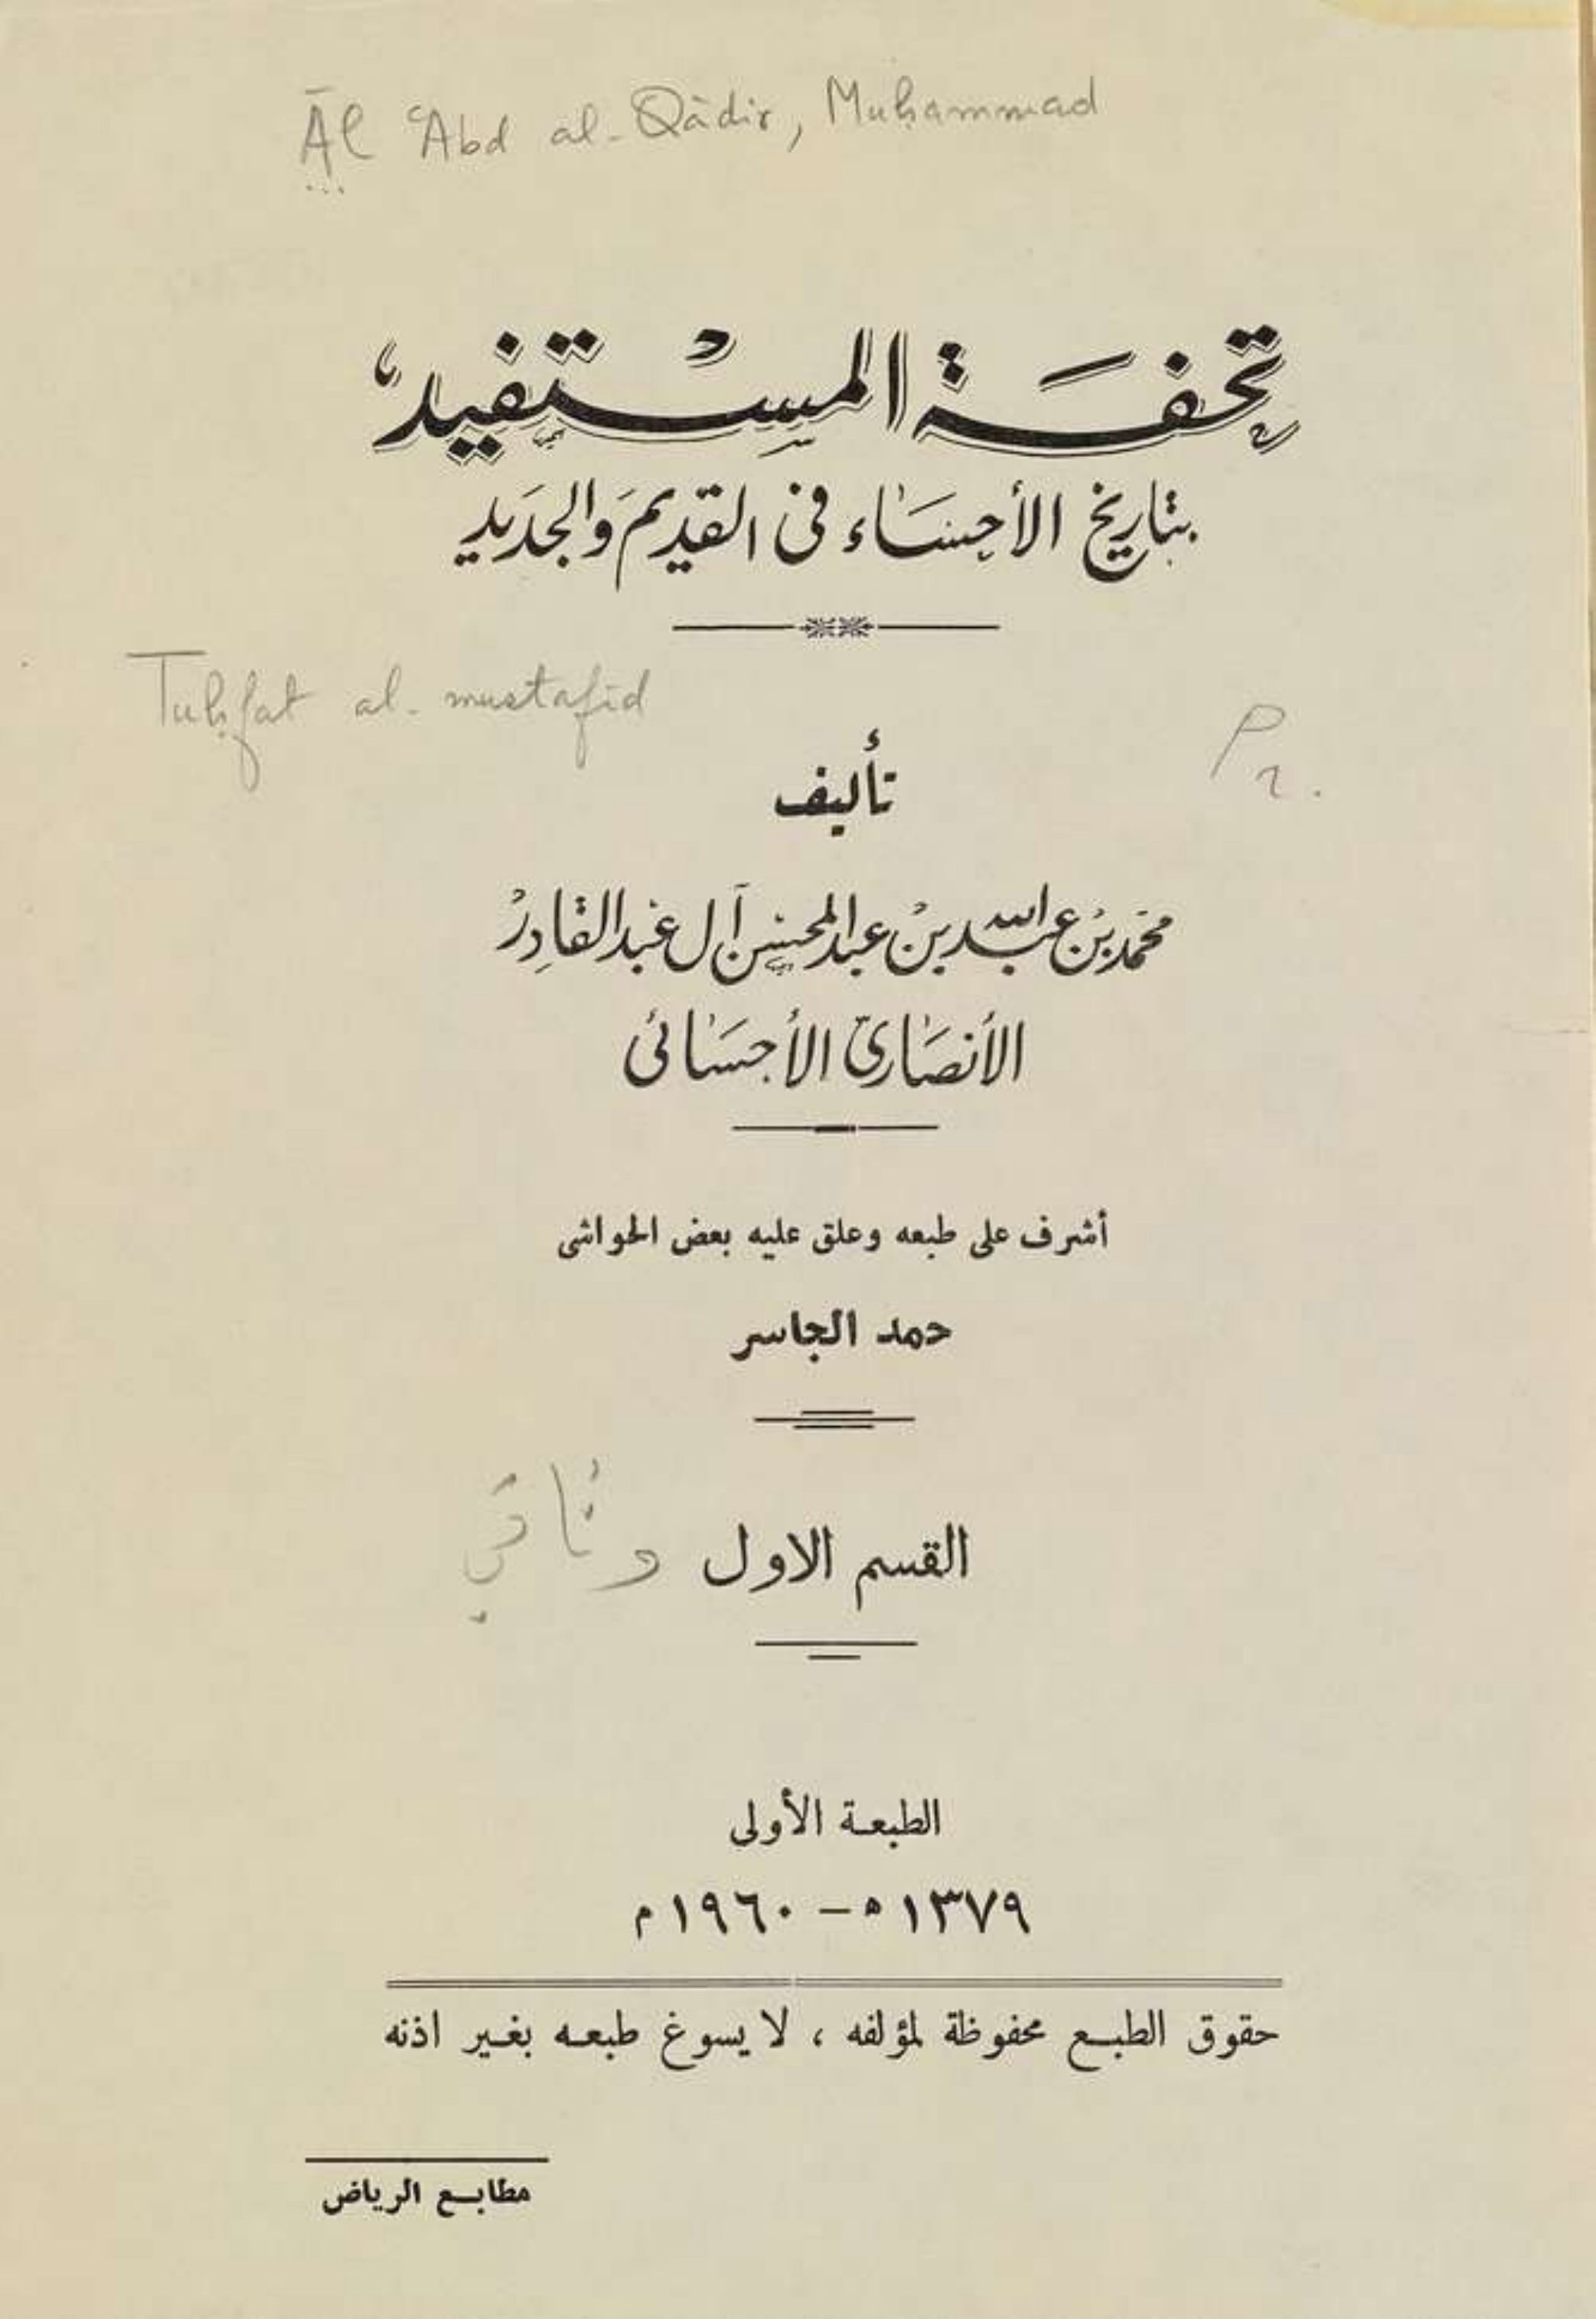 Āl ʿAbd al-Qādir, Muḥammad
تحفة المستفيد
بتاريخ الأحساء فى القديم والجديد
Tuḥfat al-mustafīd
تأليف
محمد بن عبد الله بن عبد المحسن آل عبد القادر
الأنصارى الأحسائى
أشرف على طبعه وعلق عليه بعض الحواشى
حمد الجاسر
القسم الاول وثاني
الطبعة الأولى
١٣٧٩ ه – ١٩٦٠ م
حقوق الطبع محفوظة لمؤلفه ، لا يسوغ طبعه بغير اذنه
مطابع الرياض